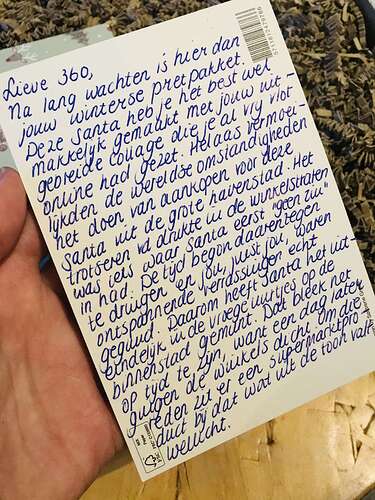 Lieve 360,
Na lang wachten is hier dan
jouw winterse pretpakket.
Deze Santa heb je het best wel
makkelijk gemaakt met jouw uit-
gebreide collage die je al vrij vlot
online had gezet. Helaas vermoei-
lijkten de wereldse omstandigheden
het doen van aankopen voor deze
Santa uit de grote havenstad. Het
trotseren vd drukte in de winkelstraten
was iets waar Santa eerst "geen zin"
in had. De tijd begon daarentegen
te dringen en jou, juist jou, waren
ontspannende verrassingen echt
gegund. Daarom heeft Santa het uit-
eindelijk in de vroege uurtjes op de
binnenstad gemunt. Dat bleek net
op tijd te zijn, want een dag later
gingen de winkels dicht. Om die
reden zit er een supermarktpro-
duct bij dat wat uit de toon valt
wellicht.